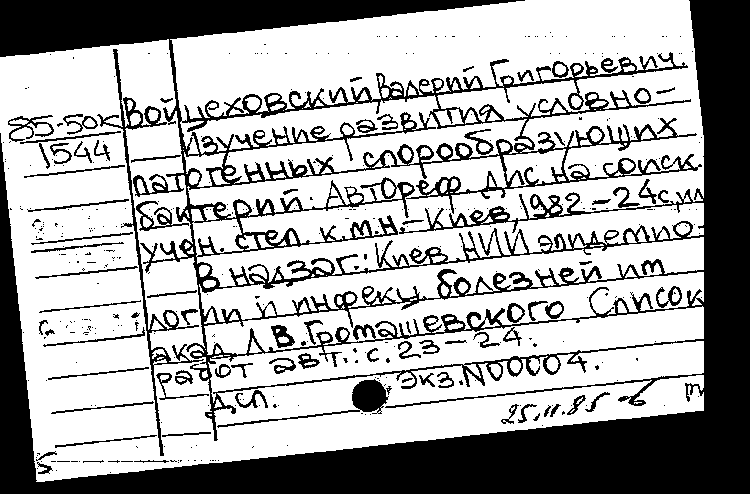 85-50к
1544
Войцеховский, Валерий Григорьевич.
Изучение развития условно-
патогенных спорообразующих
бактерий: Автореф. дис. на соиск.
учен. степ. к.м.н.-Киев, 1982.-24с., ил
В надзаг.: Киев. НИИ эпидемио-
логии и инфекц. болезней им.
акад. Л.В. Громашевского. Список
работ авт.: с.23-24.
Экз.N00004.
ДСП.
25.11.85